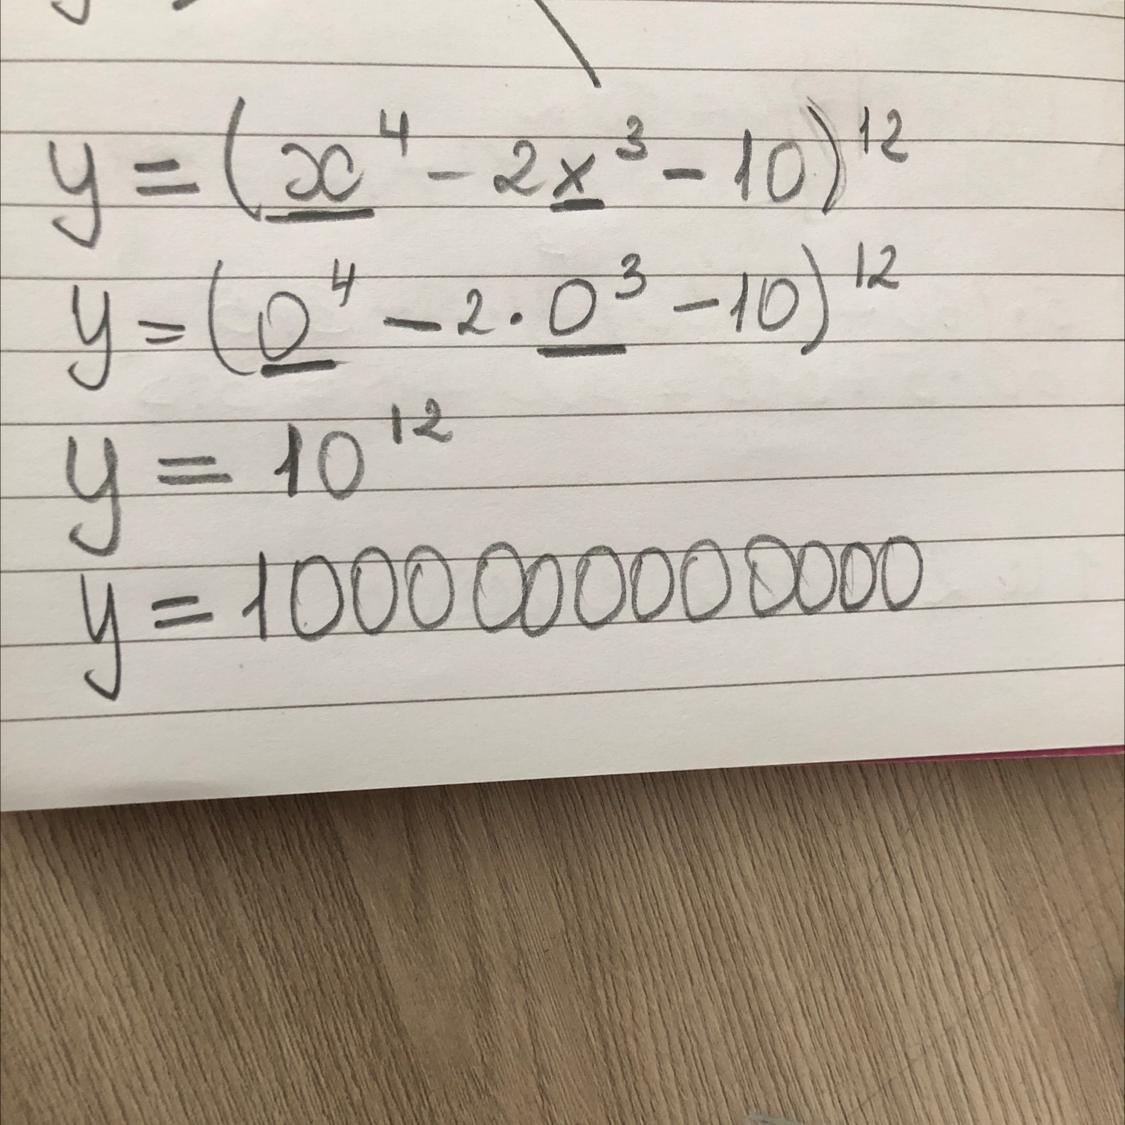 y = (x⁴ - 2x³ - 10)¹²
y = (0⁴ - 2 · 0³ - 10)¹²
y = 10¹²
y = 1000000000000